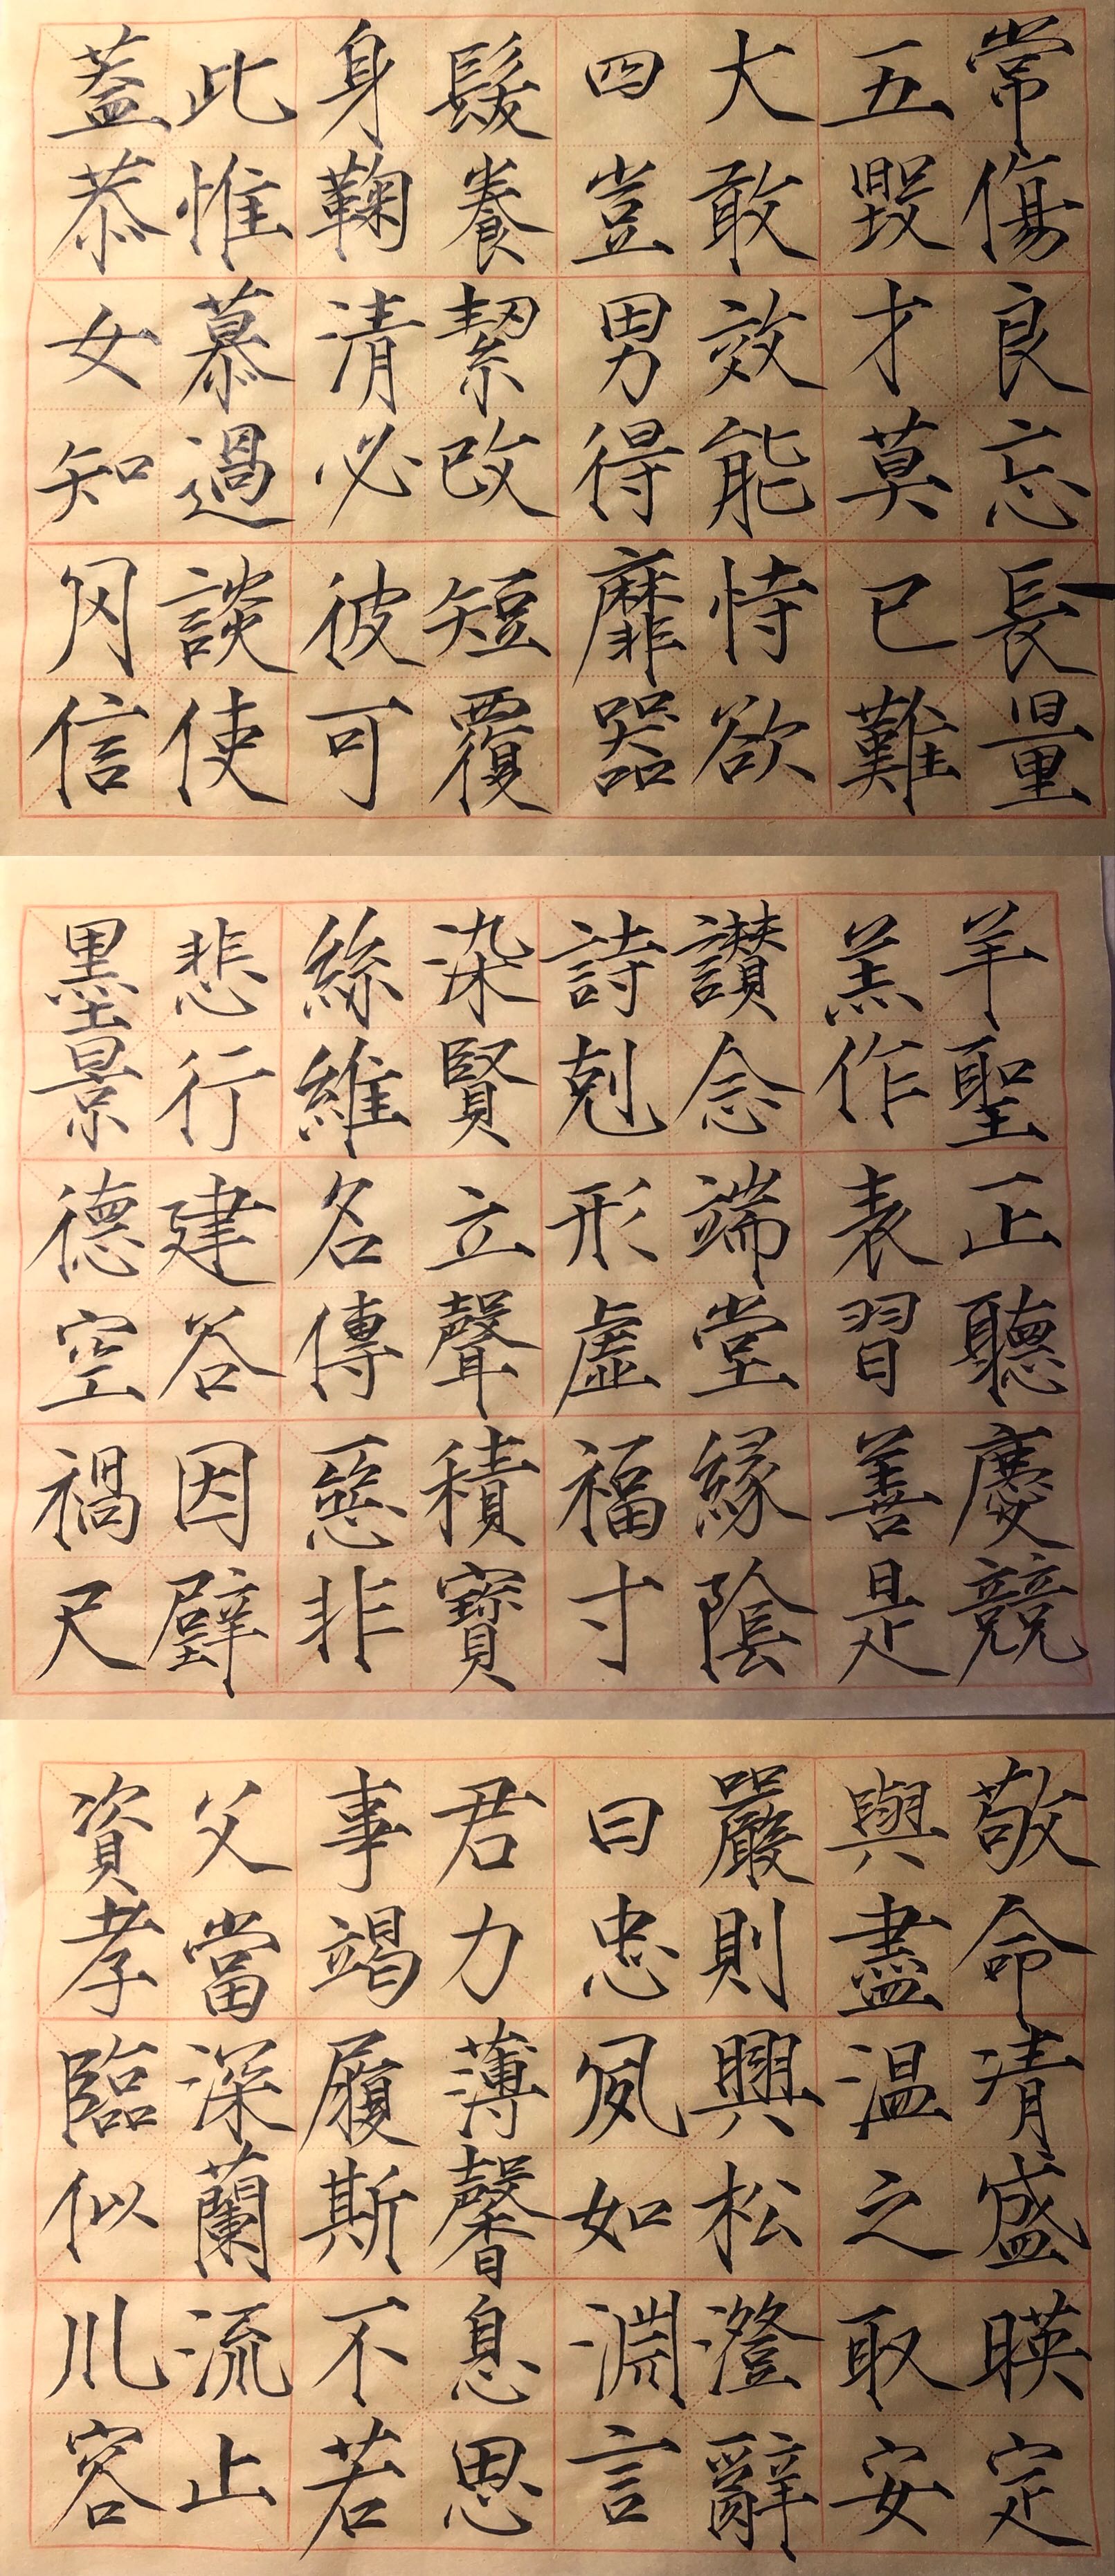 蓋此身髮四大五常
恭惟鞠養豈敢毀傷
女慕清絜男效才良
知過必改得能莫忘
罔談彼短靡恃己長
信使可覆器欲難量
墨悲絲染詩讚羔羊
景行維賢剋念作聖
德建名立形端表正
空谷傳聲虛堂習聽
禍因惡積福緣善慶
尺璧非寶寸陰是競
資父事君曰嚴與敬
孝當竭力忠則盡命
臨深履薄夙興溫清
似蘭斯馨如松之盛
川流不息淵澄取暎
容止若思言辭安定